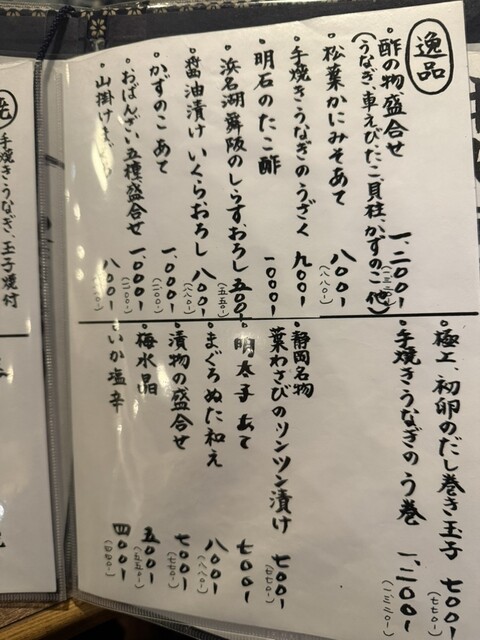 逸品
・酢の物盛合せ
(うなぎ、車えび、たこ、貝柱、かずのこ他)
一、二〇〇-
(一三二〇-)
・松葉かにみそあて 八〇〇-
(八八〇-)
・手焼きうなぎのうざく 九〇〇-
・明石のたこ酢 一〇〇〇-
・浜名湖舞阪のしらすおろし 五〇〇-
(五五〇-)
・醤油漬けいくらおろし 八〇〇-
(八八〇-)
・かずのこあて 一、〇〇〇-
(一一〇〇-)
・おばんざい五種盛合せ 一、〇〇〇-
(一一〇〇-)
・山掛け 八〇〇-
・極上、初卵のだし巻き玉子 七〇〇-
(七七〇-)
・手焼きうなぎのう巻 一、二〇〇-
(一三二〇-)
・静岡名物
葉わさびのツンツン漬け 七〇〇-
(七七〇-)
・明太子あて 七〇〇-
・まぐろぬた和え 八〇〇-
(八八〇-)
・漬物の盛合せ 七〇〇-
(七七〇-)
・梅水晶 五〇〇-
(五五〇-)
・いか塩辛 四〇〇-
(四四〇-)
手焼きうなぎ、玉子焼付